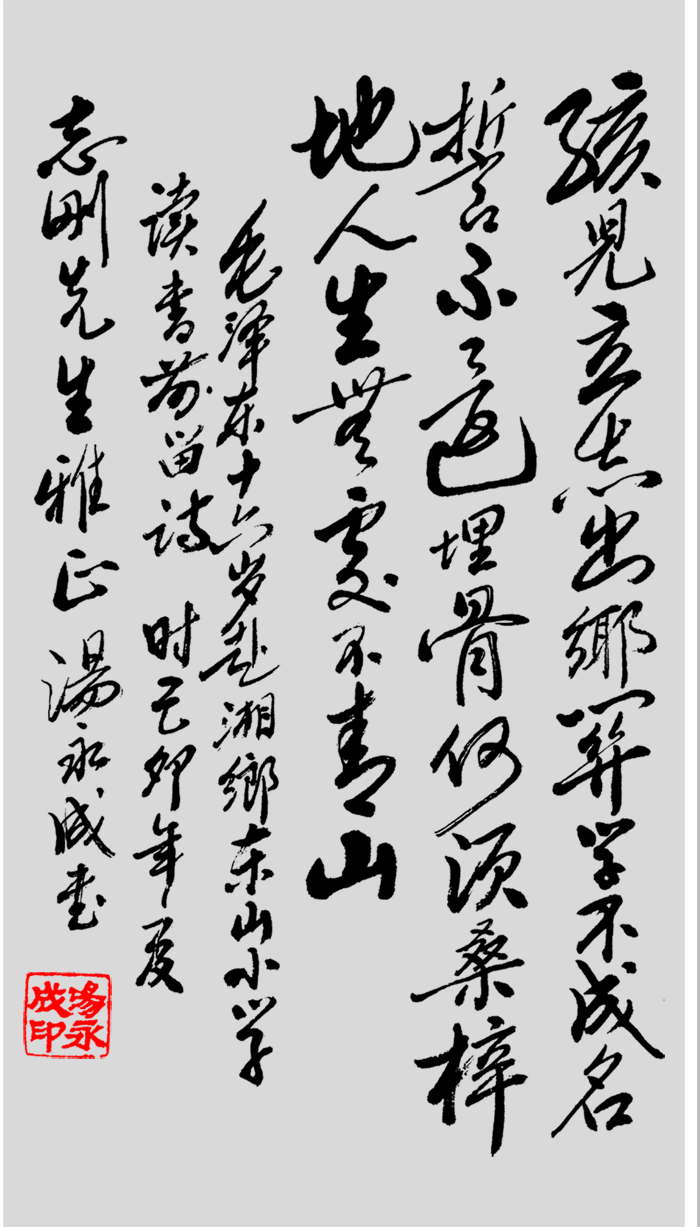 孩兒立志出鄉関学不成名
誓不還埋骨何须桑梓
地人生無處不青山
毛泽东十六岁赴湘鄉东山小学
读书前留诗 时己卯年夏
志刚先生雅正 湯永成书
湯永
成印